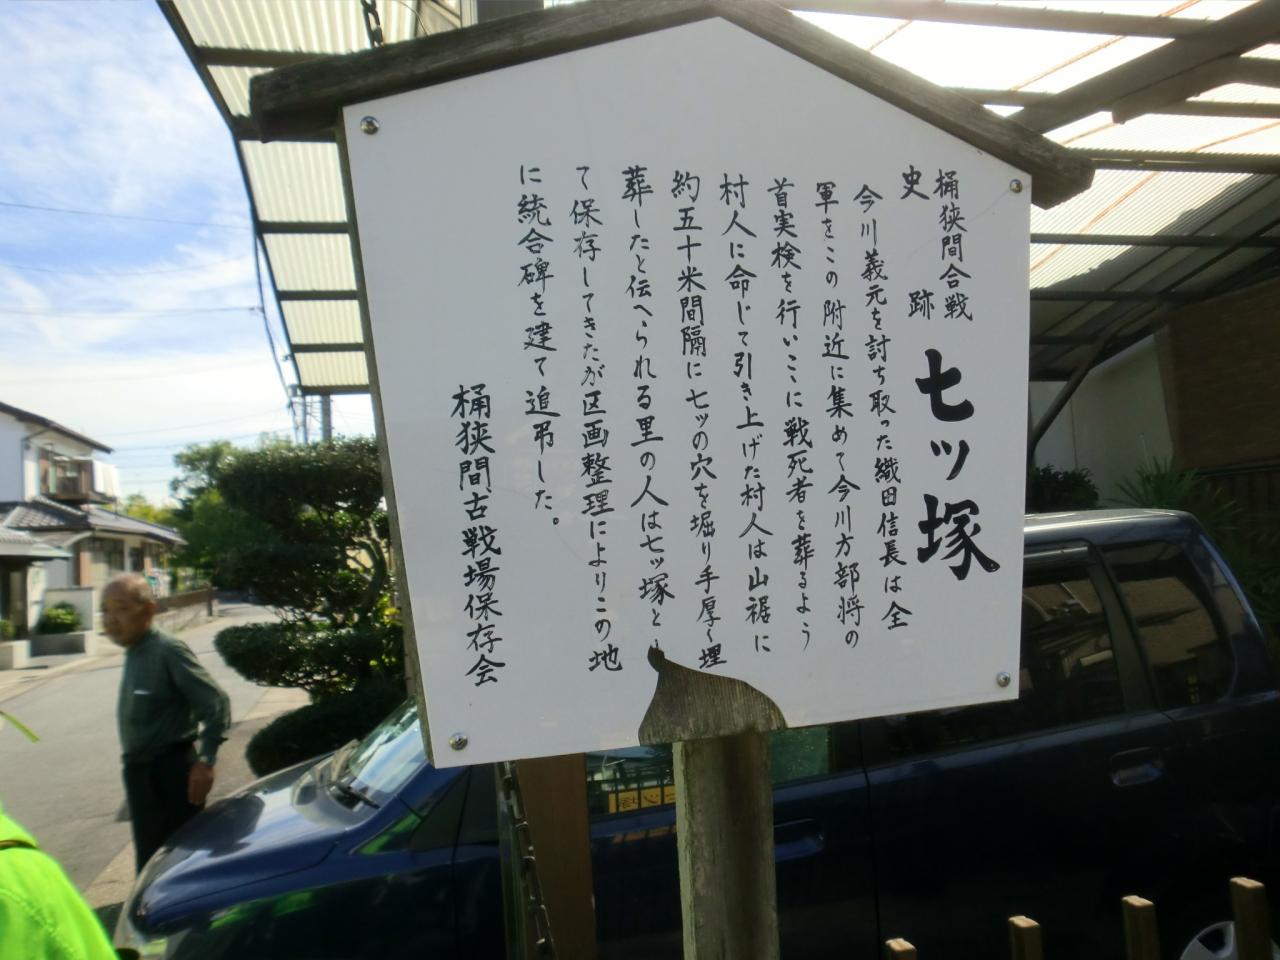 桶狭間合戦
史跡 七ッ塚
今川義元を討ち取った織田信長は全
軍をこの附近に集めて今川方部将の
首実検を行いここに戦死者を葬るよう
村人に命じて引き上げた村人は山裾に
約五十米間隔に七ッの穴を堀り手厚く埋
葬したと伝へられる里の人は七ッ塚と
て保存してきたが区画整理によりこの地
に統合碑を建て追弔した。
桶狭間古戦場保存会